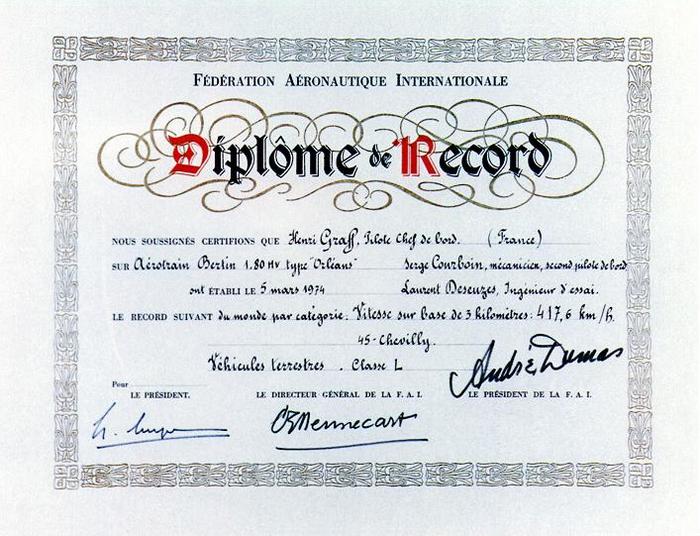 FÉDÉRATION AÉRONAUTIQUE INTERNATIONALE
Diplôme de Record
NOUS SOUSSIGNÉS CERTIFIONS QUE Henri Graff, Pilote Chef de bord. (France)
SUR Aérotrain Bertin 1.80 HV type "Orléans" Serge Courboin, mécanicien, second pilote de bord
ont ÉTABLI LE 5 mars 1974 Laurent Deseuzes, Ingénieur d'essai.
LE RECORD SUIVANT du monde par catégorie. Vitesse sur base de 3 kilomètres: 417,6 km/h.
45-Chevilly.
Véhicules terrestres. Classe L
André Dumas
Pour
LE PRÉSIDENT. LE DIRECTEUR GÉNÉRAL DE LA F. A. I. LE PRÉSIDENT DE LA F. A. I.